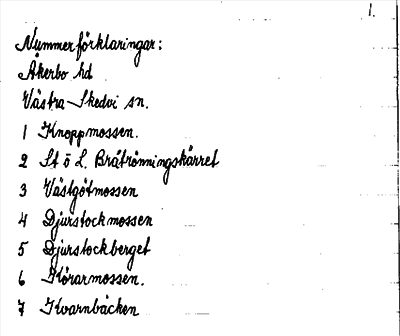 1.
Nummerförklaringar:
Åkerbo hd
Västra-Skedvi sn.
1 Knoppmossen.
2 St o L. Bråtrönningskärret
3 Västgötmossen
4 Djurstockmossen
5 Djurstockberget
6 Körarmossen.
7 Kvarnbäcken